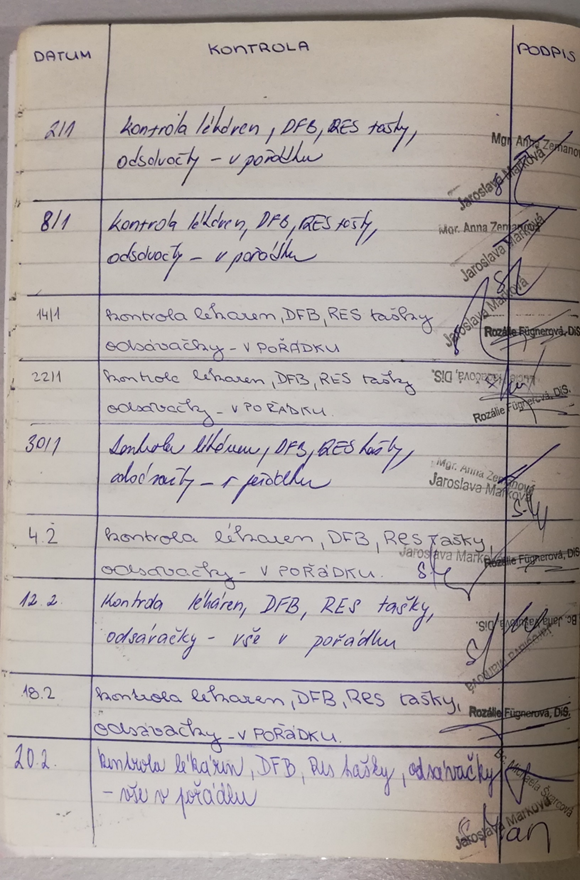 DATUM KONTROLA PODPIS
2/1 kontrola lékáren, DFB, RES tašky,
odsávačky – v pořádku
Mgr. Anna Zemanová
Jaroslava Marková
8/1 kontrola lékáren, DFB, RES tašky,
odsávačky – v pořádku
Mgr. Anna Zemanová
Jaroslava Marková
14/1 kontrola lékaren, DFB, RES tašky
odsávačky - V POŘÁDKU
Jaroslava Marková
Rozálie Fügnerová, DiS.
22/1 kontrola lékaren, DFB, RES tašky
odsávačky - V POŘÁDKU.
DiS.
Rozálie Fügnerová, DiS.
30/1 kontrola lékáren, DFB, RES tašky,
odsávačky – v pořádku
Mgr. Anna Zemanová
Jaroslava Marková
4.2 kontrola lékaren, DFB, RES tašky,
Jaroslava Marková Rozálie Fügnerová, DiS.
odsávačky - V POŘÁDKU.
12.2. Kontrola lékáren, DFB, RES tašky,
odsávačky - vše v pořádku
Bc. Jana DiS.
18.2 kontrola lékaren, DFB, RES tašky,
Rozálie Fügnerová, DiS.
odsávačky - V POŘÁDKU.
20.2. kontrola lékáren, DFB, Res tašky, odsávačky
– vše v pořádku
Michaela Švorcová
Jaroslava Marková